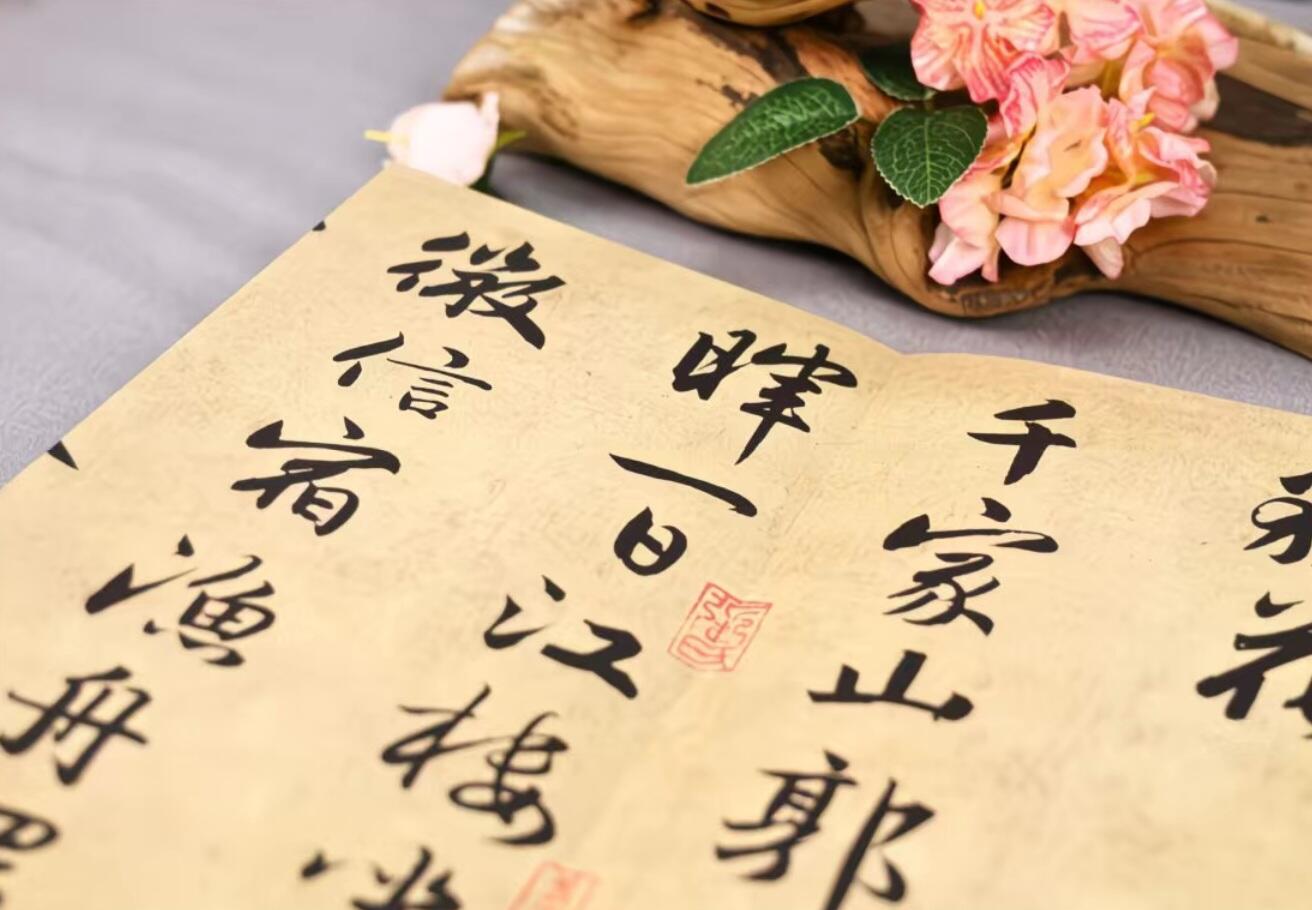 花
千家山郭
暉一日江樓
微信宿漁舟